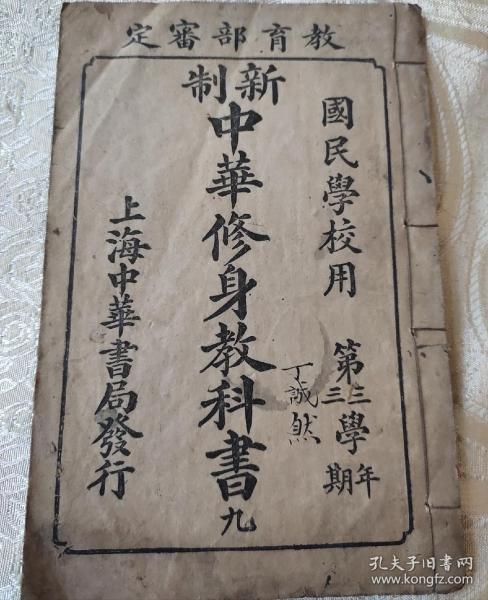 教育部審定
國民學校用
第三三學年期
新制
中華修身教科書九
丁誠然
上海中華書局發行
孔夫子旧书网
www.kongfz.com